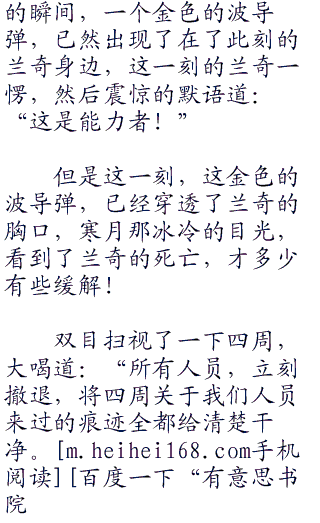 的瞬间，一个金色的波导
弹，已然出现了在了此刻的
兰奇身边，这一刻的兰奇一
愣，然后震惊的默语道：
“这是能力者！”
但是这一刻，这金色的
波导弹，已经穿透了兰奇的
胸口，寒月那冰冷的目光，
看到了兰奇的死亡，才多少
有些缓解！
双目扫视了一下四周，
大喝道：“所有人员，立刻
撤退，将四周关于我们人员
来过的痕迹全都给清楚干
净。[m.heihei168.com手机
阅读][百度一下“有意思书
院